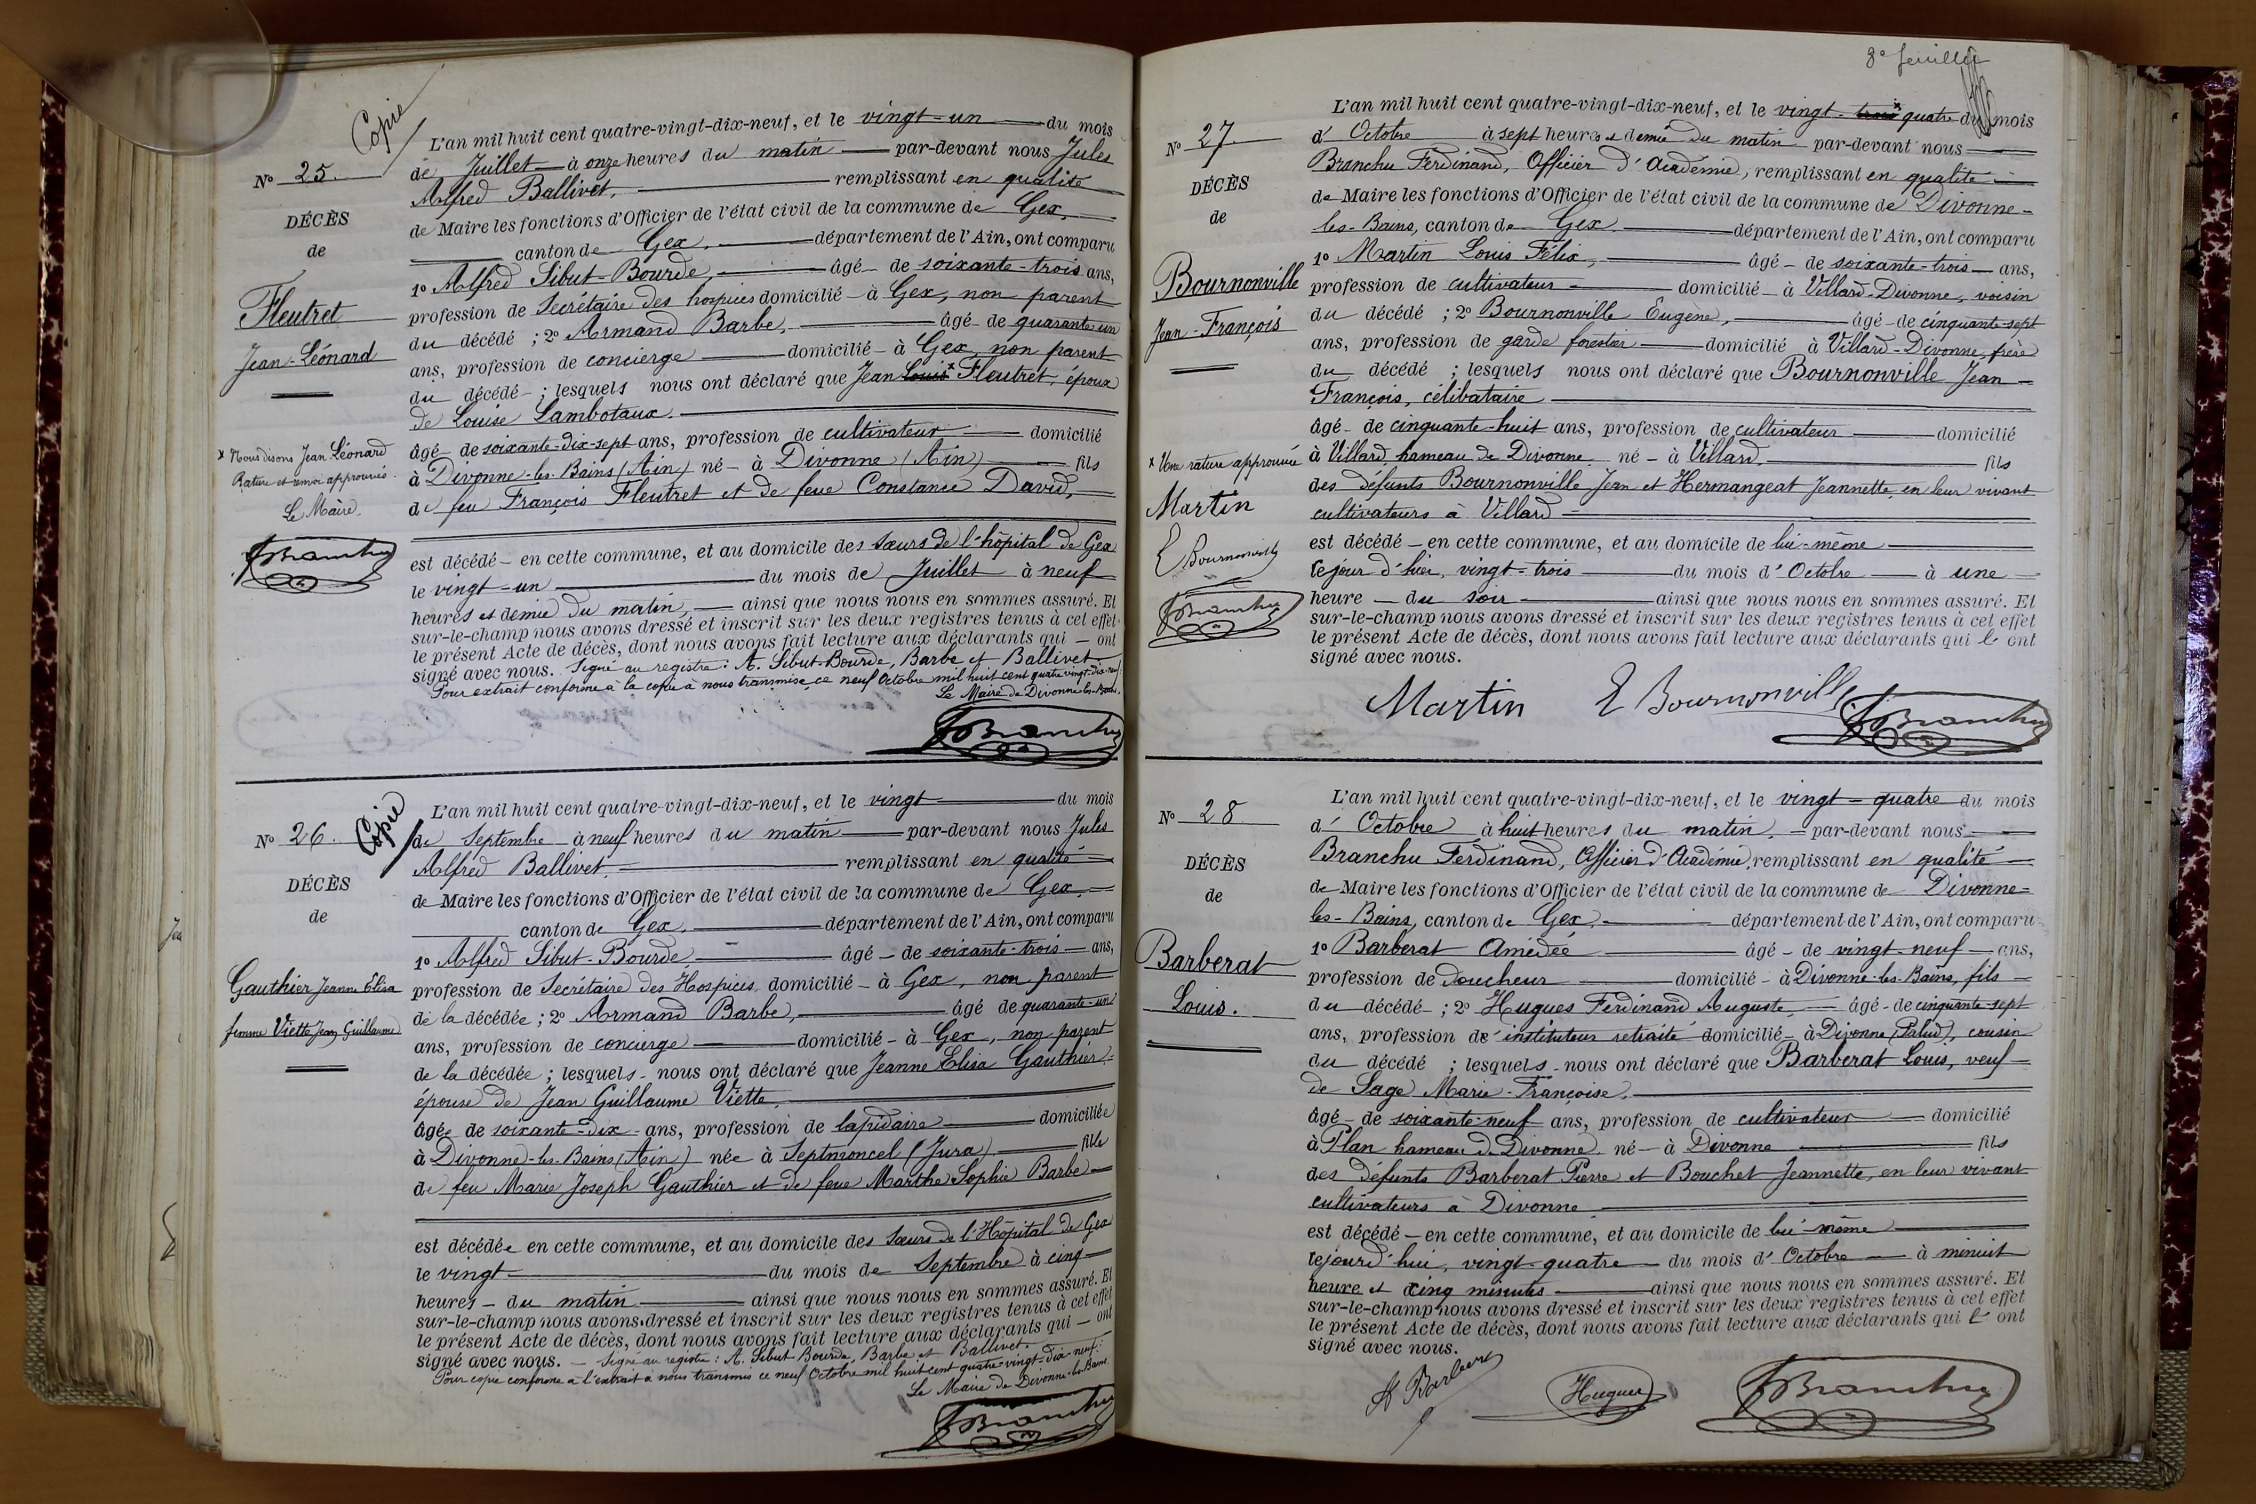 Copie
L'an mil huit cent quatre-vingt-dix-neuf, et le vingt-un du mois
de Juillet à onze heures du matin par-devant nous Jules
Alfred Ballivet, remplissant en qualité
de Maire les fonctions d'Officier de l'état civil de la commune de Gex,
canton de Gex, département de l'Ain, ont comparu
1º Alfred Sibut-Bourde, âgé de soixante-trois ans,
profession de Secrétaire des hospices domicilié à Gex, non parent
du décédé ; 2º Armand Barbe, âgé de quarante-un
ans, profession de concierge domicilié à Gex, non parent
du décédé ; lesquels nous ont déclaré que Jean Louis* Fleutret, époux
de Louise Lambotaux.
âgé de soixante-dix-sept ans, profession de cultivateur domicilié
à Divonne-les-Bains (Ain) né à Divonne (Ain) fils
de feu François Fleutret et de feue Constance David,
est décédé en cette commune, et au domicile des sœurs de l'hôpital de Gex
le vingt-un du mois de Juillet à neuf
heures et demie du matin, ainsi que nous nous en sommes assuré. Et
sur-le-champ nous avons dressé et inscrit sur les deux registres tenus à cet effet
le présent Acte de décès, dont nous avons fait lecture aux déclarants qui ont
signé avec nous. Signé au registre : A. Sibut-Bourde, Barbe et Ballivet
Pour extrait conforme à la copie à nous transmise ce neuf Octobre mil huit cent quatre vingt-dix-neuf.
Le Maire de Divonne-les-Bains,
Branchu
Nº 25.
DÉCÈS
de
Fleutret
Jean-Léonard
* Nous disons Jean Léonard
Rature et renvoi approuvés.
Le Maire.
Branchu
Nº 26.
Copie
DÉCÈS
de
Gauthier Jeanne Elisa
femme Viette Jean Guillaume
L'an mil huit cent quatre-vingt-dix-neuf, et le vingt du mois
de Septembre à neuf heures du matin par-devant nous Jules
Alfred Ballivet. remplissant en qualité
de Maire les fonctions d'Officier de l'état civil de la commune de Gex,
canton de Gex. département de l'Ain, ont comparu
1º Alfred Sibut-Bourde âgé de soixante-trois ans,
profession de Secrétaire des Hospices domicilié à Gex, non parent
de la décédée ; 2º Armand Barbe, âgé de quarante-un
ans, profession de concierge domicilié à Gex, non parent
de la décédée ; lesquels nous ont déclaré que Jeanne Elisa Gauthier
épouse de Jean Guillaume Viette,
âgée de soixante-dix ans, profession de lapidaire domiciliée
à Divonne-les-Bains (Ain) née à Septmoncel (Jura) fille
de feu Marie Joseph Gauthier et de feue Marthe Sophie Barbe
est décédée en cette commune, et au domicile des Sœurs de l'Hôpital de Gex
le vingt du mois de Septembre à cinq
heures du matin ainsi que nous nous en sommes assuré. Et
sur-le-champ nous avons dressé et inscrit sur les deux registres tenus à cet effet
le présent Acte de décès, dont nous avons fait lecture aux déclarants qui ont
signé avec nous. Signé au registre : A. Sibut-Bourde, Barbe et Ballivet.
Pour copie conforme à l'extrait à nous transmis ce neuf Octobre mil huit cent quatre-vingt-dix-neuf.
Le Maire de Divonne-les-Bains
Branchu
3e feuillet
Nº 27.
DÉCÈS
de
Bournonville
Jean-François
* Une rature approuvée
Martin
E Bournonville
Branchu
L'an mil huit cent quatre-vingt-dix-neuf, et le vingt-trois* quatre du mois
d'Octobre à sept heures et demie du matin par-devant nous
Branchu Ferdinand, Officier d'Académie, remplissant en qualité
de Maire les fonctions d'Officier de l'état civil de la commune de Divonne-
les-Bains, canton de Gex. département de l'Ain, ont comparu
1º Martin Louis Félix, âgé de soixante-trois ans,
profession de cultivateur domicilié à Villard-Divonne, voisin
du décédé ; 2º Bournonville Eugène, âgé de cinquante-sept
ans, profession de garde forestier domicilié à Villard-Divonne, frère
du décédé ; lesquels nous ont déclaré que Bournonville Jean
François, célibataire
âgé de cinquante-huit ans, profession de cultivateur domicilié
à Villard hameau de Divonne né à Villard. fils
des défunts Bournonville Jean et Hermangeat Jeannette, en leur vivant
cultivateurs à Villard
est décédé en cette commune, et au domicile de lui-même
le jour d'hier, vingt-trois du mois d'Octobre à une
heure du soir ainsi que nous nous en sommes assuré. Et
sur-le-champ nous avons dressé et inscrit sur les deux registres tenus à cet effet
le présent Acte de décès, dont nous avons fait lecture aux déclarants qui l'ont
signé avec nous.
Martin E Bournonville Branchu
Nº 28
DÉCÈS
de
Barberat
Louis.
L'an mil huit cent quatre-vingt-dix-neuf, et le vingt-quatre du mois
d'Octobre à huit heures du matin. par-devant nous
Branchu Ferdinand, Officier d'Académie, remplissant en qualité
de Maire les fonctions d'Officier de l'état civil de la commune de Divonne-
les-Bains, canton de Gex. département de l'Ain, ont comparu
1º Barberat Amédée âgé de vingt-neuf ans,
profession de doucheur domicilié à Divonne-les-Bains, fils
du décédé ; 2º Hugues Ferdinand Auguste, âgé de cinquante-sept
ans, profession d'instituteur retraité domicilié à Divonne (Palud), cousin
du décédé ; lesquels nous ont déclaré que Barberat Louis, veuf
de Sage Marie-Françoise.
âgé de soixante-neuf ans, profession de cultivateur domicilié
à Plan hameau de Divonne né à Divonne fils
des défunts Barberat Pierre et Bouchet Jeannette, en leur vivant
cultivateurs à Divonne
est décédé en cette commune, et au domicile de lui-même
lejourd'hui, vingt-quatre du mois d'Octobre à minuit
heure et cinq minutes ainsi que nous nous en sommes assuré. Et
sur-le-champ nous avons dressé et inscrit sur les deux registres tenus à cet effet
le présent Acte de décès, dont nous avons fait lecture aux déclarants qui l'ont
signé avec nous.
A Barberat Hugues Branchu